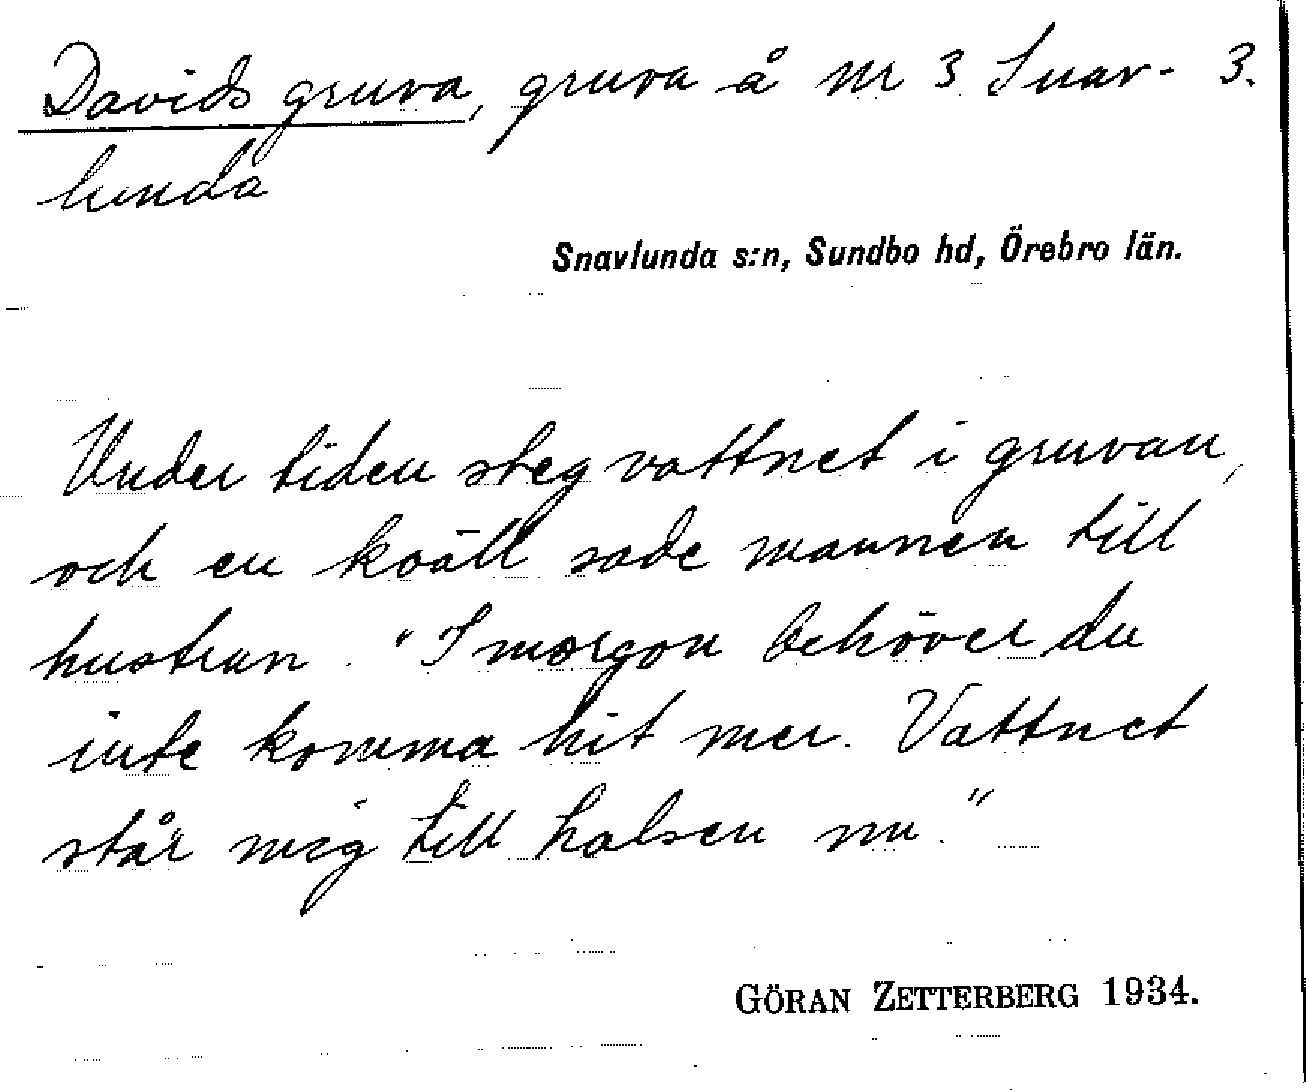 Davids gruva, gruva å nr 3 Snav- 3.
lunda
Snavlunda s:n, Sundbo hd, Örebro län.
Under tiden steg vattnet i gruvan,
och en kväll sade mannen till
hustrun. "I morgon behöver du
inte komma hit mer. Vattnet
står mig till halsen nu."
GÖRAN ZETTERBERG 1934.